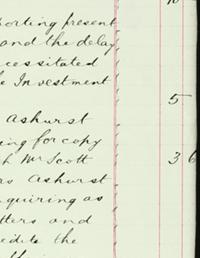 10
porting present
and the delay
cessitated
e Investment
5
Ashurst
ing for copy
h Mr Scott 3 6
rs Ashurst
nquiring as
tters and
edite the